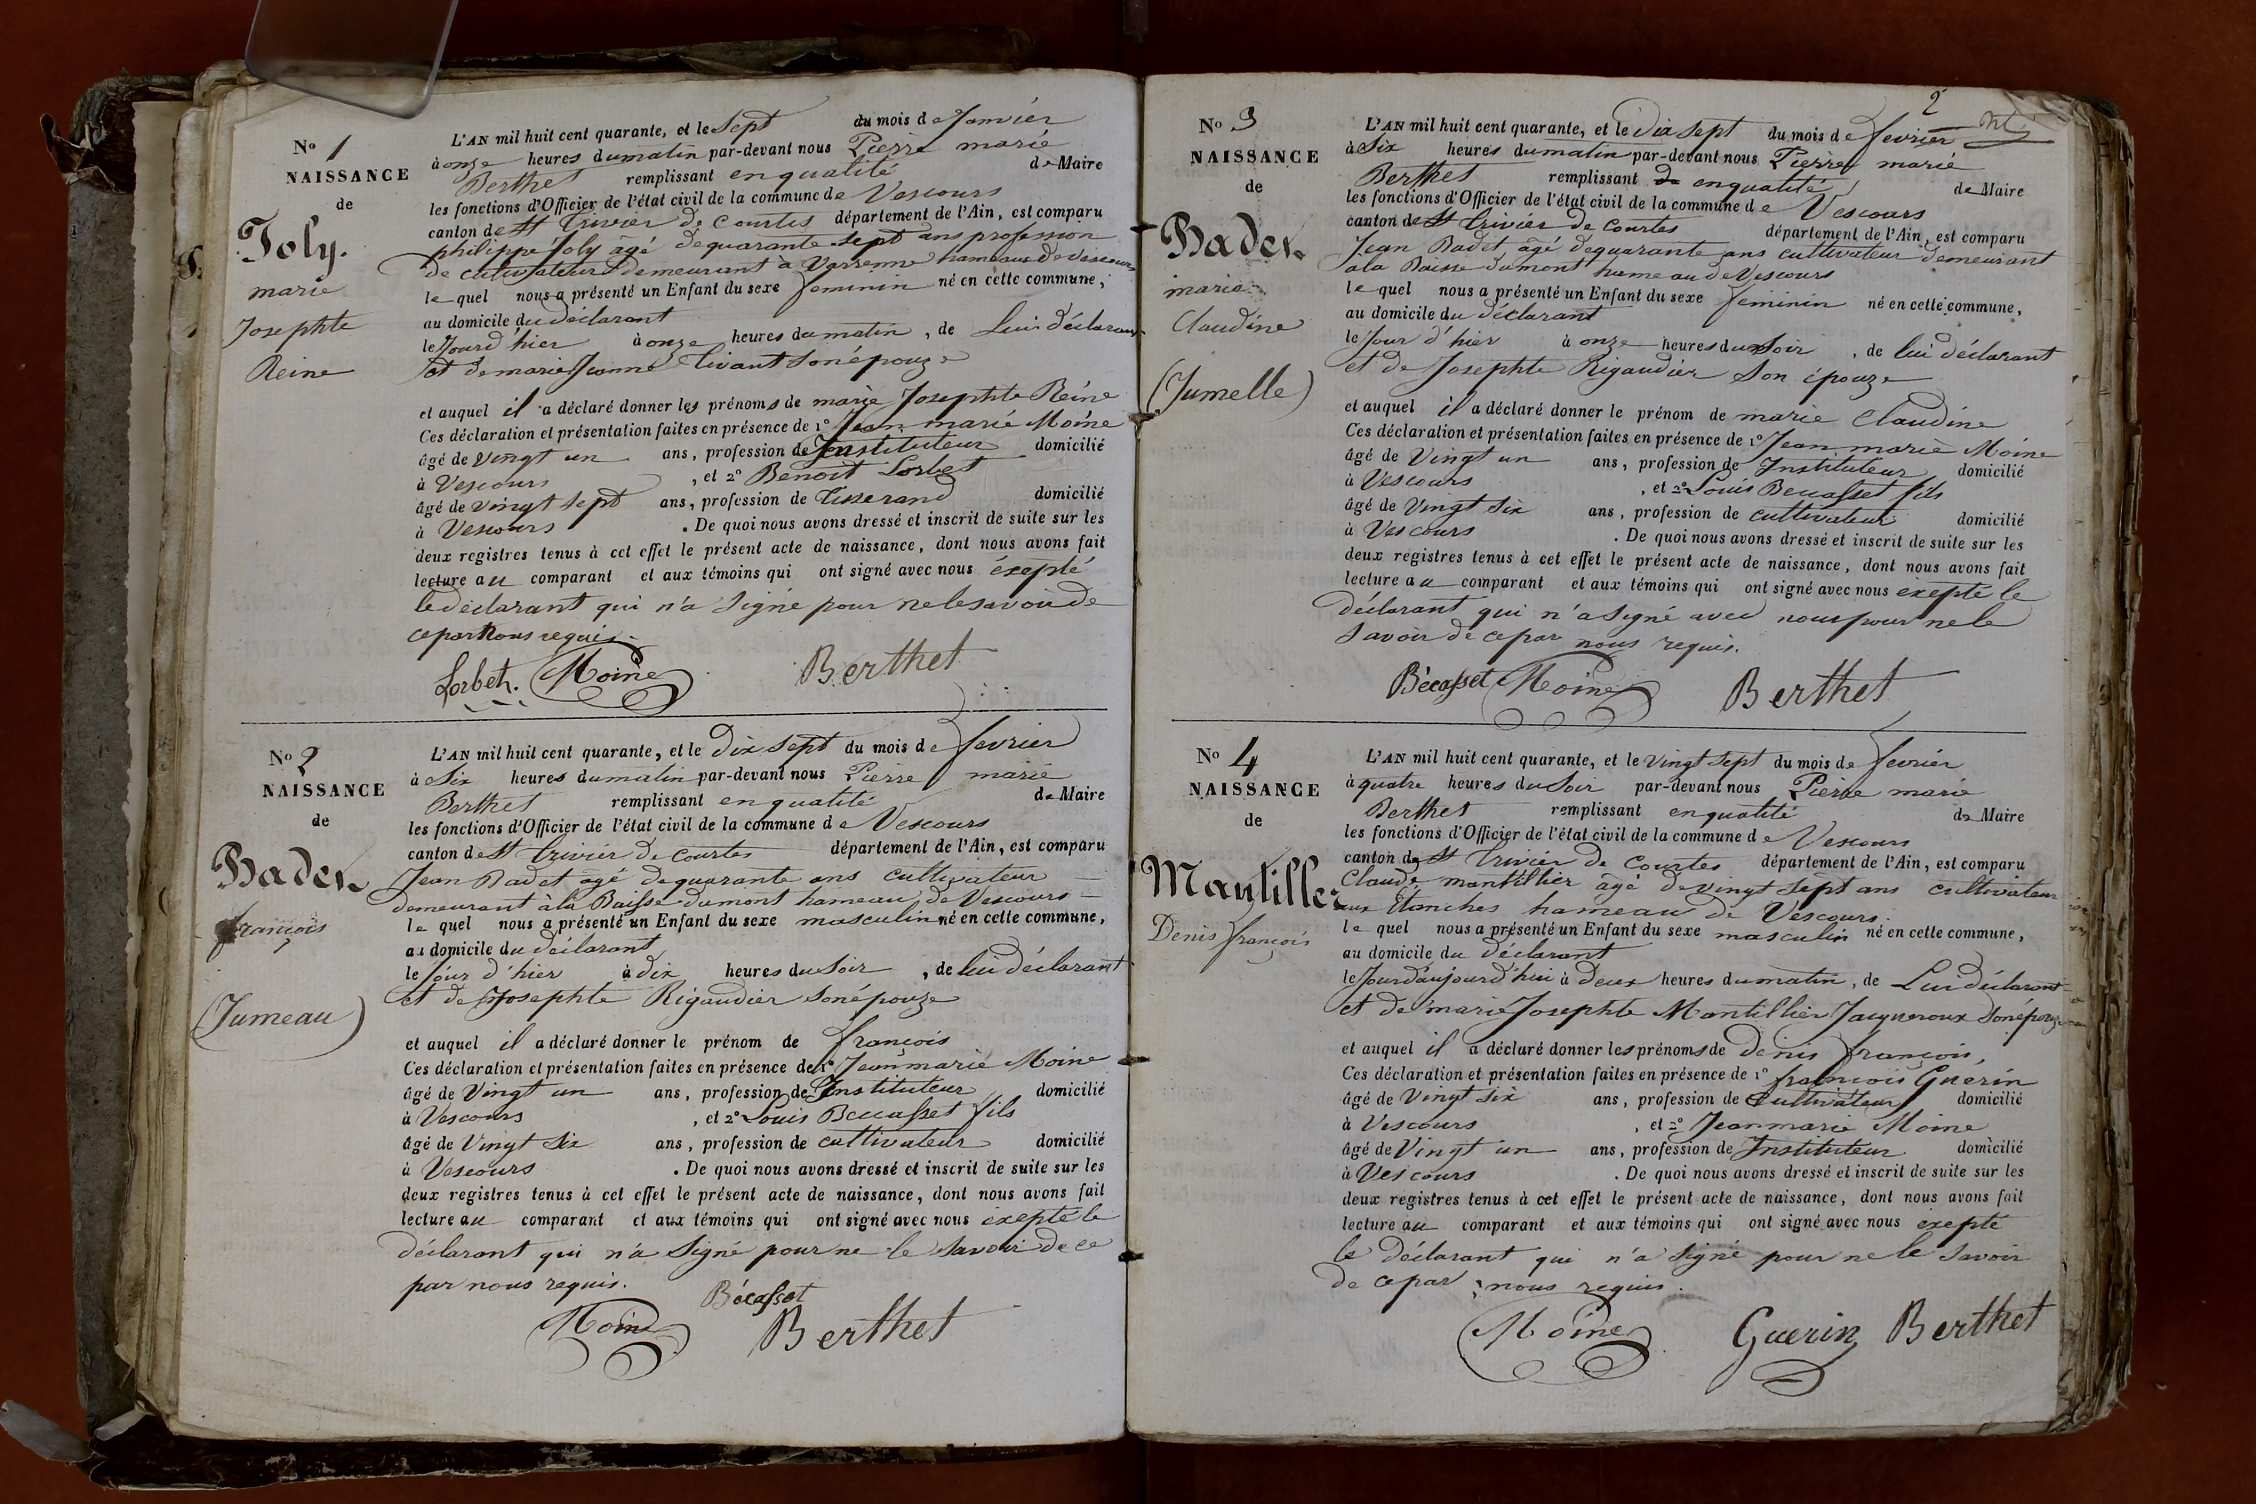 No 1
NAISSANCE
de
Joly.
marie
Josephte
Reine
L'AN mil huit cent quarante, et le sept du mois de Janvier
à onze heures du matin par-devant nous Pierre marie
Berthet remplissant en qualité de Maire
les fonctions d'Officier de l'état civil de la commune de Vescours
canton de St Trivier de Courtes département de l'Ain, est comparu
philippe Joly âgé de quarante sept ans profession
de cultivateur demeurant à Varenne hameau de Vescours
le quel nous a présenté un Enfant du sexe feminin né en cette commune,
au domicile du déclarant
le Jourd'hier à onze heures du matin, de Lui déclarant
et de marie Jeanne Livant son épouze
et auquel il a déclaré donner les prénoms de marie Josephte Reine
Ces déclaration et présentation faites en présence de 1° Jean marie Moine
âgé de vingt un ans, profession de Instituteur domicilié
à Vescours, et 2° Benoit Lorbet
âgé de vingt sept ans, profession de Tisserand domicilié
à Vescours. De quoi nous avons dressé et inscrit de suite sur les
deux registres tenus à cet effet le présent acte de naissance, dont nous avons fait
lecture au comparant et aux témoins qui ont signé avec nous éxepté
le déclarant qui n'a signé pour ne le savoir de
ce par nous requis.
Lorbet. Moine Berthet
No 2
NAISSANCE
de
Badet
françois
(Jumeau)
L'AN mil huit cent quarante, et le Dix sept du mois de fevrier
à Six heures du matin par-devant nous Pierre marie
Berthet remplissant en qualité de Maire
les fonctions d'Officier de l'état civil de la commune de Vescours
canton de St Trivier de Courtes département de l'Ain, est comparu
Jean Badet agé de quarante ans cultivateur
demeurant à la Baisse dumont hameau de Vescours
le quel nous a présenté un Enfant du sexe masculin né en cette commune,
au domicile du déclarant
le Jour d'hier à dix heures du Soir, de lui déclarant
et de Josephte Rigaudier son épouze
et auquel il a déclaré donner le prénom de françois
Ces déclaration et présentation faites en présence de 1° Jean marie Moine
âgé de Vingt un ans, profession de Instituteur domicilié
à Vescours, et 2° Louis Becasset fils
âgé de Vingt Six ans, profession de cultivateur domicilié
à Vescours. De quoi nous avons dressé et inscrit de suite sur les
deux registres tenus à cet effet le présent acte de naissance, dont nous avons fait
lecture au comparant et aux témoins qui ont signé avec nous éxepté le
déclarant qui n'a Signé pour ne le savoir de ce
par nous requis.
Bécasset
Moine Berthet
2
No 3
NAISSANCE
de
Badet
marie
Claudine
(Jumelle)
L'AN mil huit cent quarante, et le Dix sept du mois de fevrier
à Six heures du matin par-devant nous Pierre marie
Berthet remplissant en qualité de Maire
les fonctions d'Officier de l'état civil de la commune de Vescours
canton de St Trivier de Courtes département de l'Ain, est comparu
Jean Badet âgé de quarante ans cultivateur demeurant
a la Baisse dumont hameau de Vescours
le quel nous a présenté un Enfant du sexe feminin né en cette commune,
au domicile du déclarant
le Jour d'hier à onze heures du Soir, de lui déclarant
et de Josephte Rigaudier Son épouze
et auquel il a déclaré donner le prénom de marie Claudine
Ces déclaration et présentation faites en présence de 1° Jean marie Moine
âgé de Vingt un ans, profession de Instituteur domicilié
à Vescours, et 2° Louis Becasset fils
âgé de Vingt Six ans, profession de cultivateur domicilié
à Vescours. De quoi nous avons dressé et inscrit de suite sur les
deux registres tenus à cet effet le présent acte de naissance, dont nous avons fait
lecture au comparant et aux témoins qui ont signé avec nous éxepté le
déclarant qui n'a signé avec nous pour ne le
savoir de ce par nous requis.
Bécasset Moine Berthet
No 4
NAISSANCE
de
Mantillier
Denis françois
L'AN mil huit cent quarante, et le Vingt Sept du mois de fevrier
à quatre heures du Soir par-devant nous Pierre marie
Berthet remplissant en qualité de Maire
les fonctions d'Officier de l'état civil de la commune de Vescours
canton de St Trivier de Courtes département de l'Ain, est comparu
Claude mantillier âgé de vingt sept ans cultivateur
aux Etanches hameau de Vescours.
le quel nous a présenté un Enfant du sexe masculin né en cette commune,
au domicile du déclarant
le Jourd'aujourd'hui à Deux heures du matin, de Lui déclarant
et de marie Josephte Mantillier Jacqueroux son épouze
et auquel il a déclaré donner les prénoms de denis françois,
Ces déclaration et présentation faites en présence de 1° francois Guérin
âgé de Vingt six ans, profession de Cultivateur domicilié
à Vescours, et 2° Jean marie Moine
âgé de Vingt un ans, profession de Instituteur domicilié
à Vescours. De quoi nous avons dressé et inscrit de suite sur les
deux registres tenus à cet effet le présent acte de naissance, dont nous avons fait
lecture au comparant et aux témoins qui ont signé avec nous exepté
le déclarant qui n'a signé pour ne le savoir
de ce par nous requis.
Moine Guerin Berthet